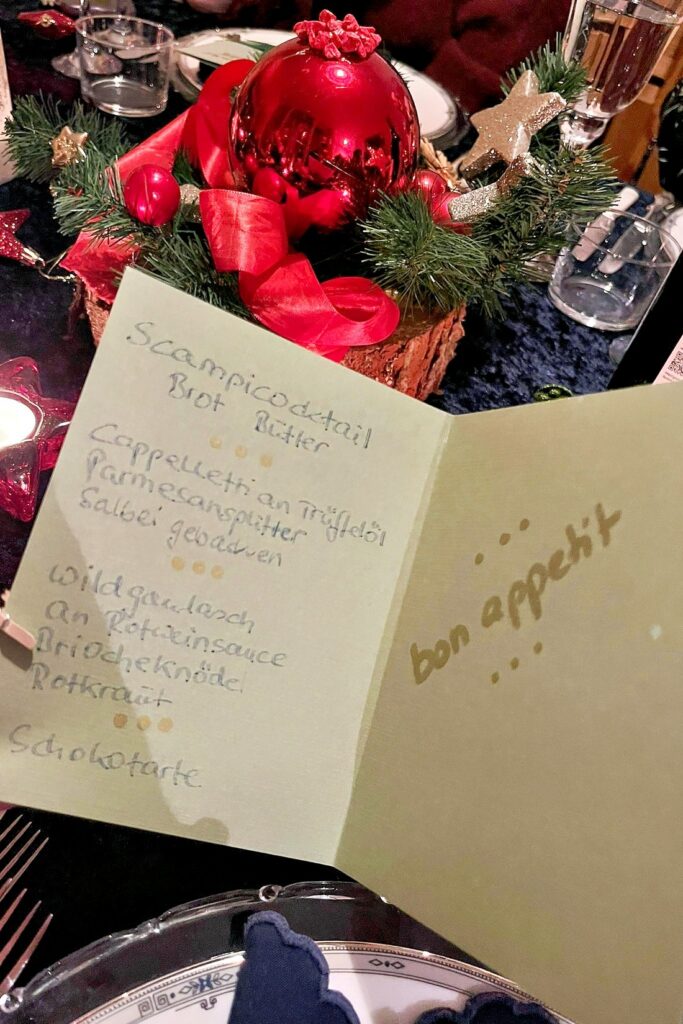 Scampicocktail
Brot Butter
Cappelletti an Trüffelöl
Parmesansplitter
Salbei gebacken
Wildgaulasch
an Rotweinsauce
Briocheknödel
Rotkraut
Schokotarte
bon appetit